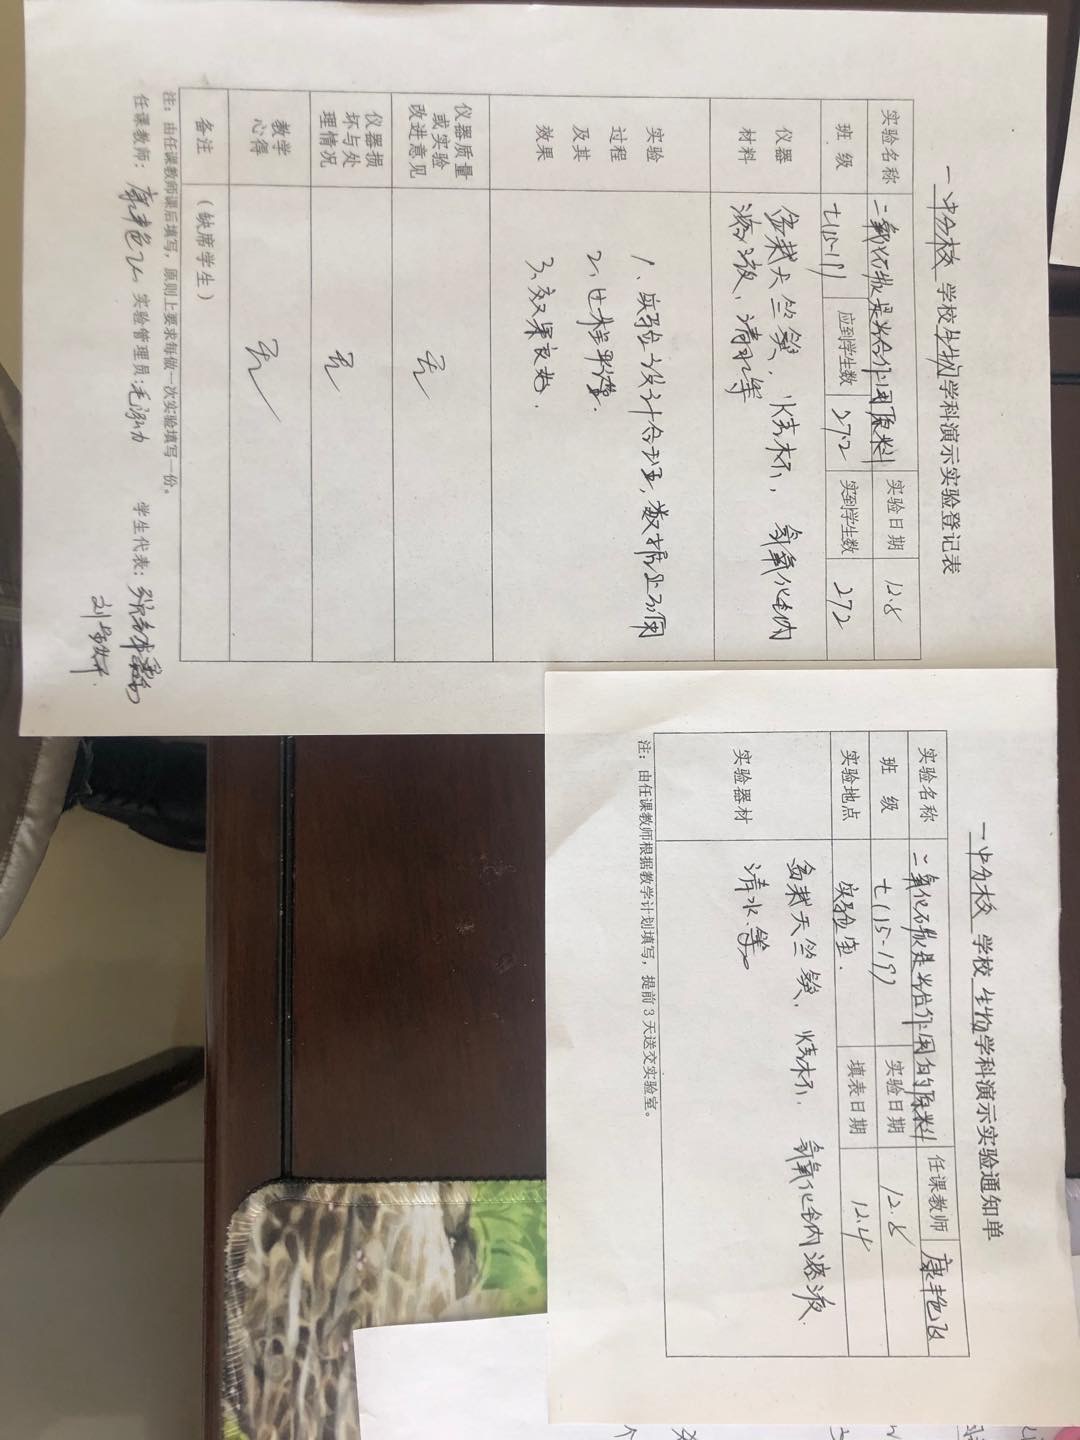 一中分校 学校生物学科演示实验登记表
实验名称 二氧化碳是光合作用原料 实验日期 12.8
班 级 七(15-19) 应到学生数 272 实到学生数 272
仪器材料 盆栽天竺葵、烧杯、氢氧化钠
溶液、清水等
实验过程及其效果
1、实验设计合理,数据
2、过程
3、效果良好.
仪器质量或实验改进意见 无
仪器损坏与处理情况 无
教学心得 无
备注 (缺席学生)
注:由任课教师课后填写,原则上要求每做一次实验填写一份。
任课教师: 康 实验管理员: 学生代表:
一中分校 学校 生物学科演示实验通知单
实验名称 二氧化碳是光合作用的原料 任课教师 康
班 级 七(15-19) 实验日期 12.8
实验地点 实验室. 填表日期 12.4
实验器材 盆栽天竺葵、烧杯、氢氧化钠溶液.
清水.等。
注:由任课教师根据教学计划填写,提前3天送交实验室。